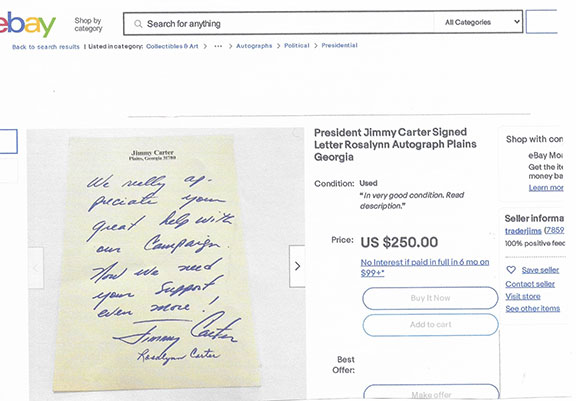 ebay
Shop by
category
Search for anything
All Categories
Back to search results | Listed in category: Collectibles & Art > ... > Autographs > Political > Presidential
Jimmy Carter
Plains, Georgia 31780
We really ap-
preciate your
great help with
our Campaign.
Now we need
your support
even more!
Jimmy Carter
Rosalynn Carter
President Jimmy Carter Signed
Letter Rosalynn Autograph Plains
Georgia
Condition: Used
"In very good condition. Read
description."
Price: US $250.00
No Interest if paid in full in 6 mo on
$99+*
Buy It Now
Add to cart
Best
Offer:
Make offer
Shop with con
eBay Mo
Get the it
money ba
Learn mor
Seller informa
traderjims (7859
100% positive feed
Save seller
Contact seller
Visit store
See other items